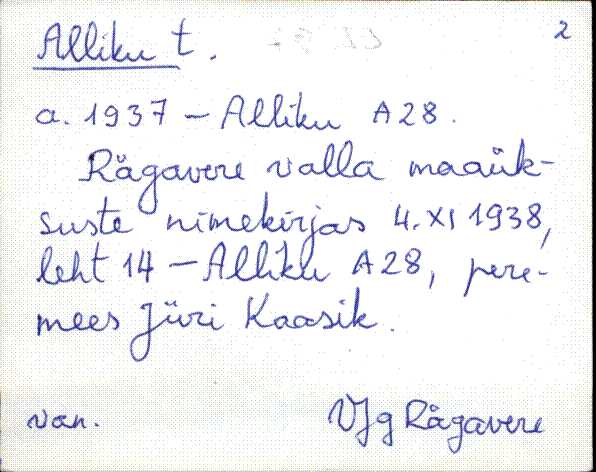 Alliku t. 2
a. 1937 – Alliku A28.
Rägavere valla maaük-
suste nimekirjas 4.XI 1938,
leht 14 – Alliku A28, pere-
mees Jüri Kaasik.
van. VJg Rägavere